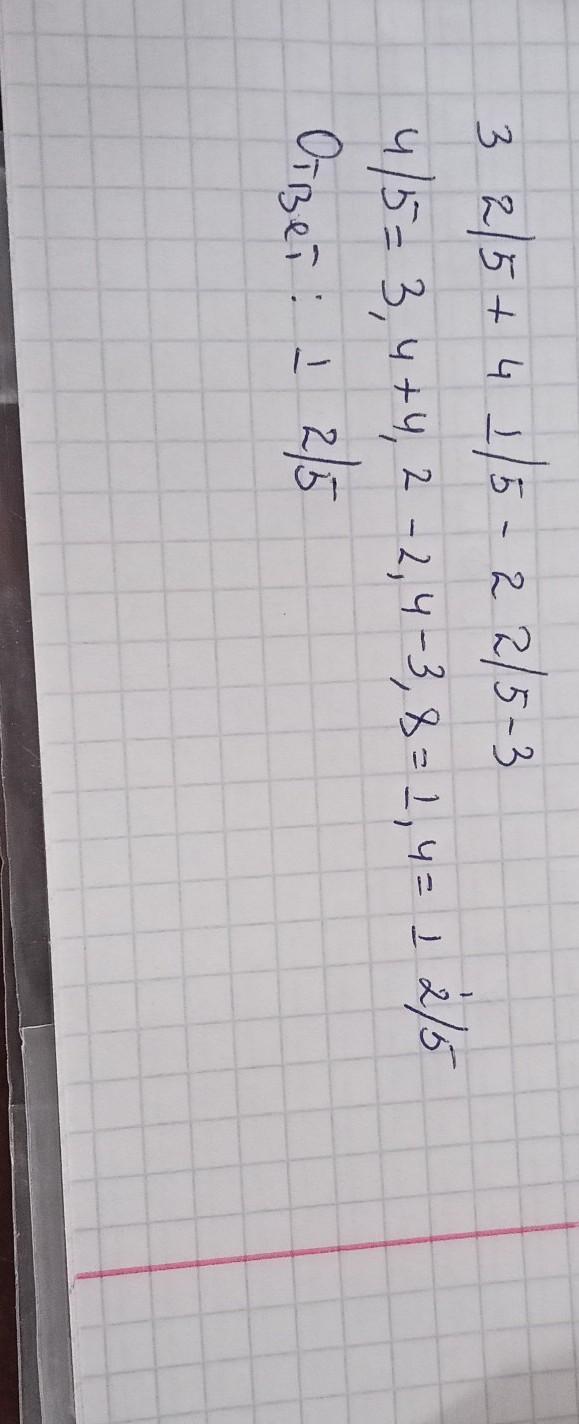 3 2/5 + 4 1/5 - 2 2/5 - 3
4/5 = 3,4 + 4,2 - 2,4 - 3,8 = 1,4 = 1 2/5
Ответ: 1 2/5